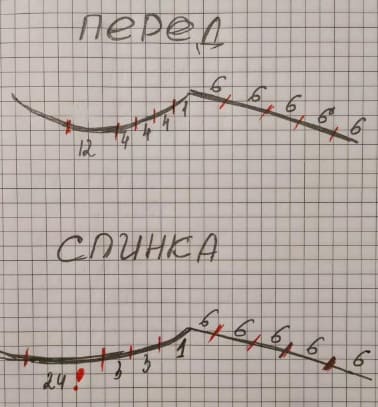 ПЕРЕД
6 6 6 6 6
12 4 4 4 1
СПИНКА
6 6 6 6 6
24! 3 3 1